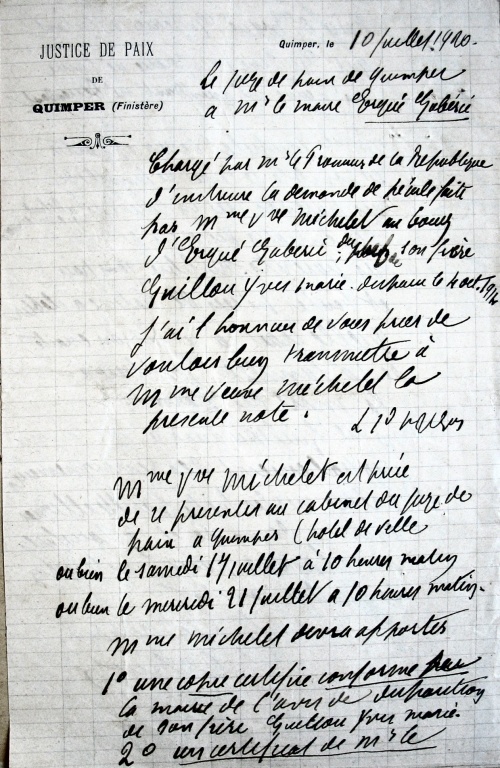 JUSTICE DE PAIX
DE
QUIMPER (Finistère)
Quimper, le 10 juillet 1920.
Le juge de paix de Quimper
a Mr le maire Ergué Gabéric
Chargé par Mr le Procureur de la République
d'instruire la demande de faite
par Mme Vve Michelet au bourg
d'Ergué Gabéric, son frère
Guillou Yves Marie. disparu le 4 oct. 1914
j'ai l'honneur de vous prier de
vouloir bien transmettre à
Mme veuve Michelet la
presente note.
Mme Vve Michelet est priée
de se presenter au cabinet du juge de
paix a Quimper (hotel de ville
ou bien le samedi 17 juillet à 10 heures matin
ou bien le mercredi 21 juillet a 10 heures matin.
Mme Michelet devra apporter
1º une copie certifiée conforme par
la mairie de l'avis de disparition
de son frère Guillou Yves Marie.
2º un certificat de Mr le